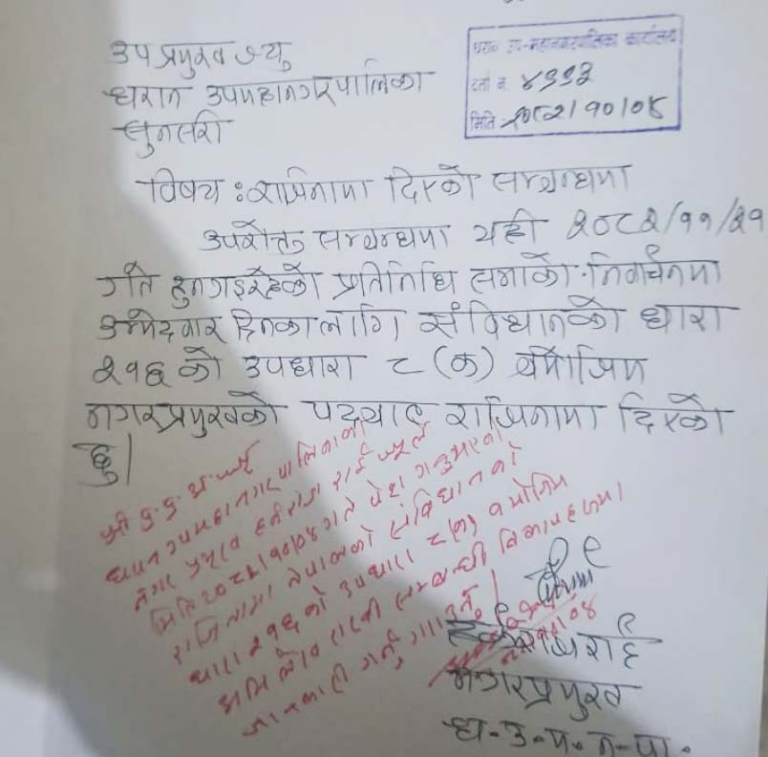 उप प्रमुख ज्यु
धरान उपमहानगरपालिका
सुनसरी
धरान उप-महानगरपालिका कार्यालय
दर्ता नं. ४११३
मिति: २०८२/१०/०४
विषय : राजिनामा दिएको सम्बन्धमा
उपरोक्त सम्बन्धमा यही २०८२/११/२१
गते हुनगइरहेको प्रतिनिधि सभाको निर्वाचनमा
उम्मेदवार दिनका लागि संविधानको धारा
२१६ को उपधारा ८ (क) बमोजिम
नगरप्रमुखको पदबाट राजिनामा दिएको
छु।
श्री प्र.प्र.अ.ज्यू
धरान उपमहानगरपालिकाका
नगर प्रमुख हर्कराज राई ज्यूले
मिति २०८२/१०/०४ गते पेश गर्नुभएको
राजिनामा नेपालको संविधानको
धारा २१६ को उपधारा ८(क) बमोजिम
अभिलेख राखी सम्बन्धी निकायहरुमा
जानकारी गर्नु गराउनु
हर्कराज राई
नगरप्रमुख
ध.उ.म.न.पा.